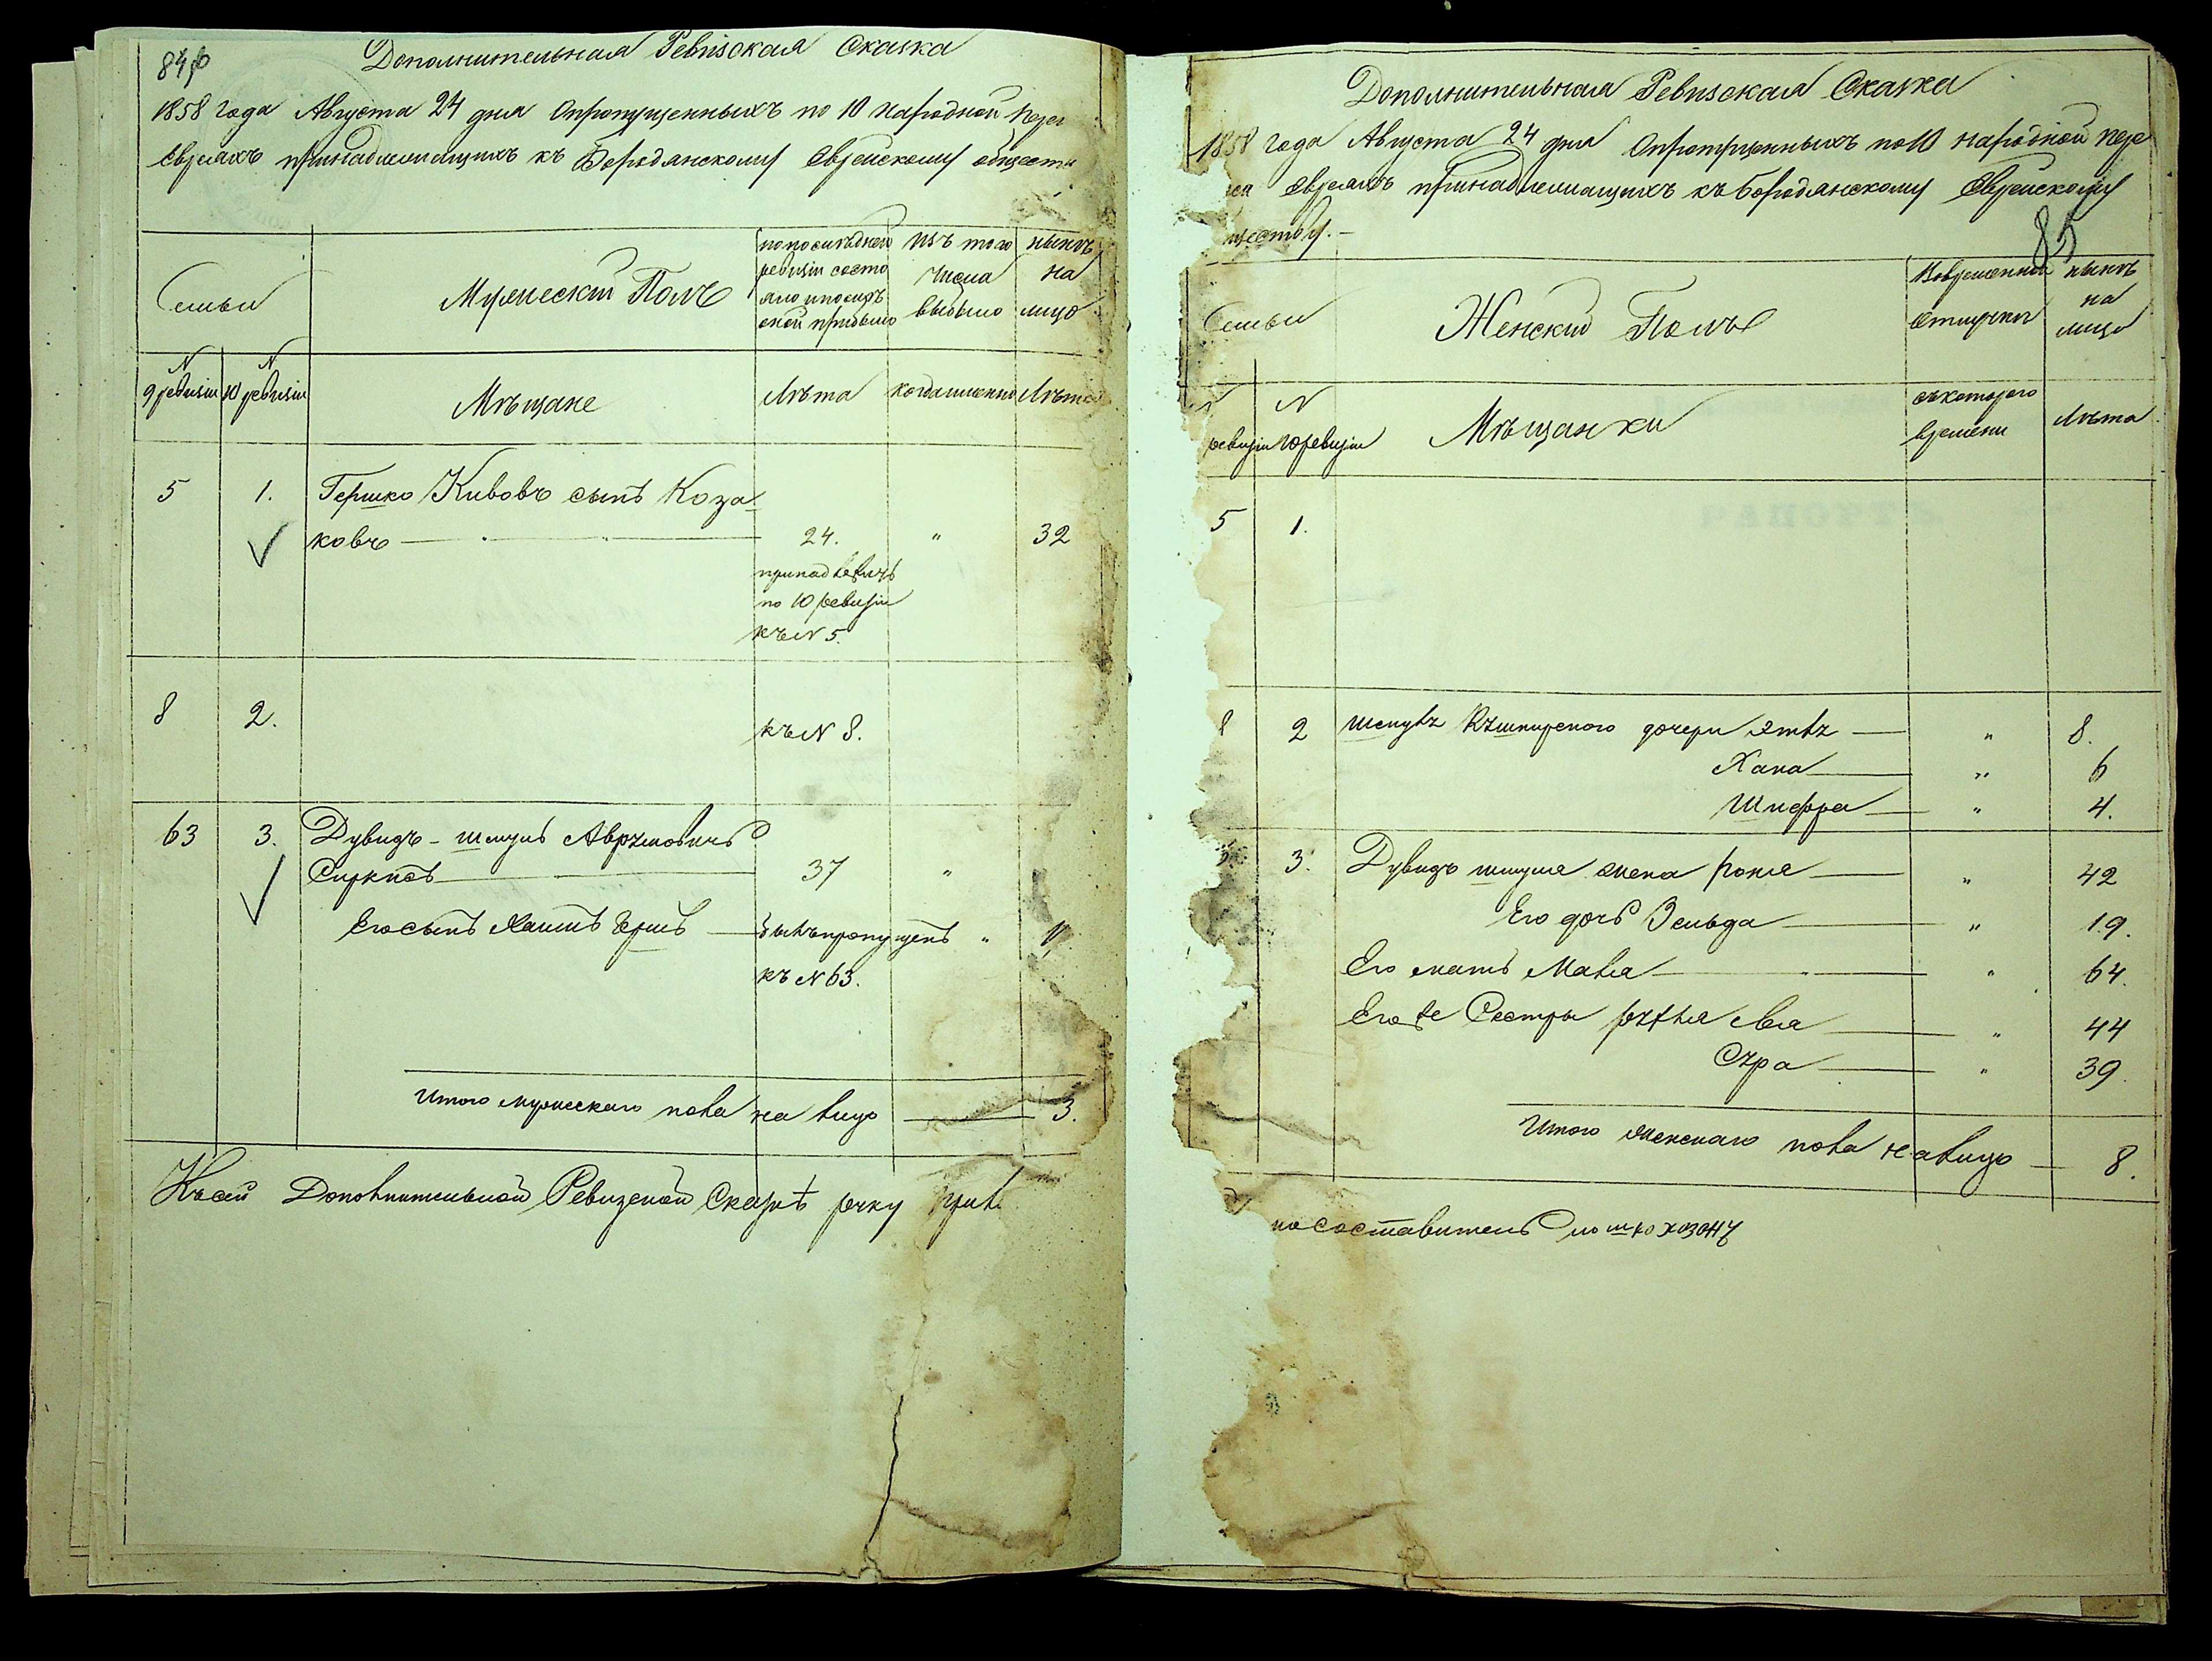 84
Дополнительная Ревизская Сказка
1858 года Августа 24 дня Опропущенныхъ по 10 народной пере
Евреяхъ принадлежащихъ къ Бородянскому Еврейскому обществ
Семьи
Мужескій Полъ
по последней ревизіи состо
яло и после
оной прибыло
изъ того
числа
выбыло
нынѣ
на
лицо
N
9 ревизіи
N
10 ревизіи
Мѣщане
Лѣта
когда именно
Лѣта
5 1. Гершко Кивовъ сынъ Коза-
ковъ 24. " 32
по 10 ревизіи
къ N 5.
8 2. къ N 8.
63 3. Дувидъ-Шмуль Аврумовичъ
Сиркисъ 37 "
Его сынъ Хаимъ Гершъ былъ пропущенъ "
къ N 63.
Итого мужескаго пола на лицо 3.
Къ сей Дополнительной Ревизской Сказкѣ руку
Дополнительная Ревизская Сказка
1858 года Августа 24 дня Опропущенныхъ по 10 народной пере
Евреяхъ принадлежащихъ къ Бородянскому Еврейскому
ществу.-
85
Семьи
Женскій Полъ
Вовременной
отлучки
нынѣ
на
лицо
N
ревизіи
N
10 ревизіи
Мѣщанки
съ котораго
времени
Лѣта
5 1.
8 2 дочери " 8.
Хана " 6
Шифра " 4.
3. Дувидъ Шмуля жена Рохля " 42
Его дочь Зельда " 19.
Его мать Малка " 64.
Его же Сестры " 44
Сура " 39.
Итого женскаго пола на лицо 8.
составитель